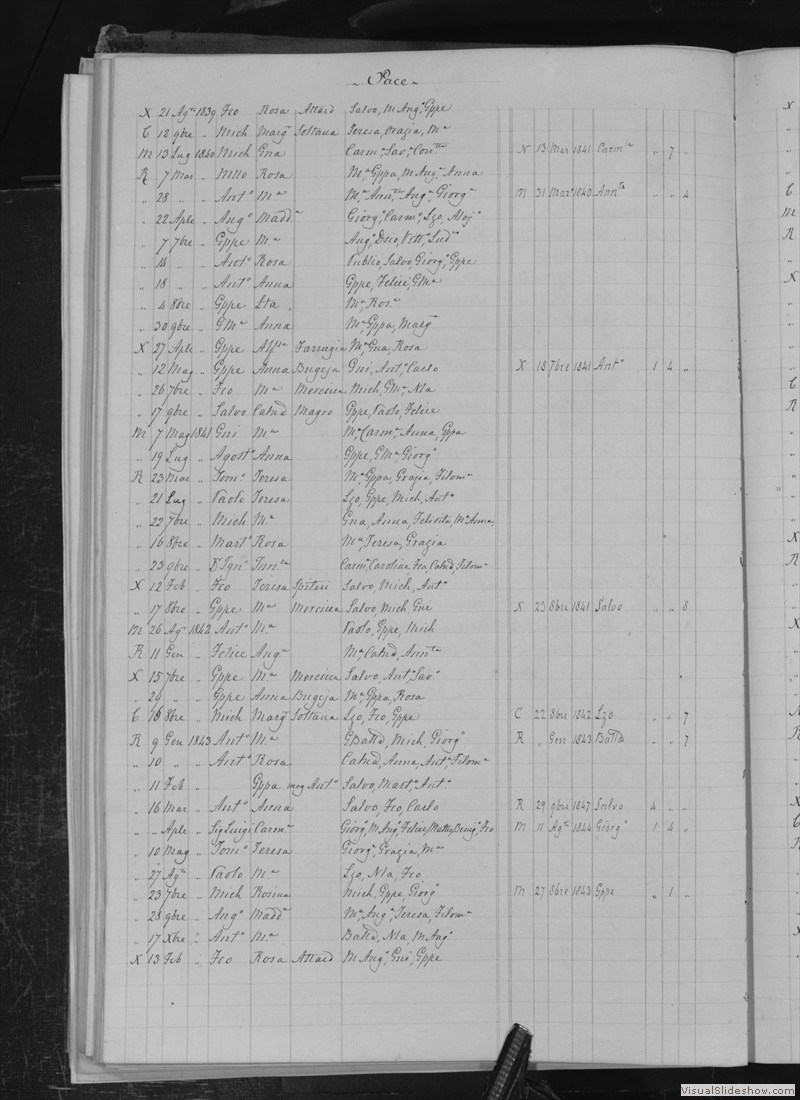 Pace
X 21 Agto 1839 Fco Rosa Attard Salvo, M Anga, Gppe
C 12 9bre " Mich Marga Soltana Teresa, Grazia, Ma
M 13 Lug 1840 Mich Gna Carmo, Savo, Contta N 13 Mar 1841 Carmla " 7 "
R 7 Mar " Nillo Rosa Ma Gppa, M Anga, Anna
" 28 " " Anto Ma Ma, Annta, Anga, Giorga M 31 Mar 1840 Annta " " 4
" 22 Aple " Ango Madda Giorgo, Carmo, Lzo, Aloj
" 7 7bre " Gppe Ma Ango, Dsio, Vitto, Luda
" 14 " " Anto Rosa Publio, Salvo, Giorgo, Gppe
" 18 " " Anto Anna Gppe, Felice, GMa
" 4 8bre " Gppe Lta Ma, Rosa
" 30 9bre " GMa Anna Ma, Gppa, Marga
X 27 Aple " Gppe Farrugia Ma, Gna, Rosa
" 12 Mag " Gppe Anna Bugeja Gni, Anto, Carlo X 18 7bre 1841 Anto 1 4 "
" 26 7bre " Fco Ma Mercieca Mich, GMa, Nla
" 17 9bre " Salvo Catnd Magro Gppe, Paolo, Felice
M 7 Mag 1841 Gni Ma Ma, Carma, Anna, Gppa
" 19 Lug " Agosto Anna Gppe, GMa, Giorgo
R 23 Mar " Tomo Teresa Ma, Gppa, Grazia, Filoma
" 21 Lug " Paolo Teresa Lzo, Gppe, Mich, Anto
" 22 7bre " Mich Ma Gna, Anna, Felicita, Ma Anna,
" 16 8bre " Marto Rosa Ma, Teresa, Grazia
" 23 9bre " Carma, Carolina, Fca, Catnd, Filoma
X 12 Feb " Fco Teresa Spiteri Salvo, Mich, Anto
" 17 8bre " Gppe Ma Mercieca Salvo, Mich, Gni X 23 8bre 1841 Salvo " " 6
M 26 Agto 1842 Anto Ma Paolo, Gppe, Mich
R 11 Gen " Felice Anga Ma, Catnd, Annta
X 15 7bre " Gppe Ma Mercieca Salvo, Anto, Savo
" 29 " " Gppe Anna Bugeja Ma, Gppa, Rosa
C 16 8bre " Mich Marga Soltana Lzo, Fco, Gppe C 22 8bre 1842 Lzo " " 7
R 9 Gen 1843 Anto Ma GBatta, Mich, Giorgo R " Gen 1843 Batta " " 7
" 10 " " Anto Rosa Catnd, Anna, Anta, Filoma
" 11 Feb " Gppa mog Anto Salvo, Marto, Anto
" 16 Mar " Anto Anna Salvo, Fco, Carlo R 29 9bre 1847 Salvo 4 " "
" " Aple " Sig Luigi Carma Giorgo, M Anga, Felice, Matteo, Benigo, Fco M 11 Agto 1844 Giorgo 1 4 "
" 10 Mag " Tomo Teresa Giorga, Grazia, Ma
" 27 Agto " Paolo Ma Lzo, Nla, Fco
" 23 7bre " Mich Rosina Mich, Gppe, Giorgo M 27 8bre 1843 Gppe " 1 "
" 28 9bre " Ango Madda Ma, Anga, Teresa, Filoma
" 17 Xbre " Anto Ma Batta, Nla, M Ango
X 13 Feb " Fco Rosa Attard M Ango, Gni, Gppe
VisualSlideshow.com